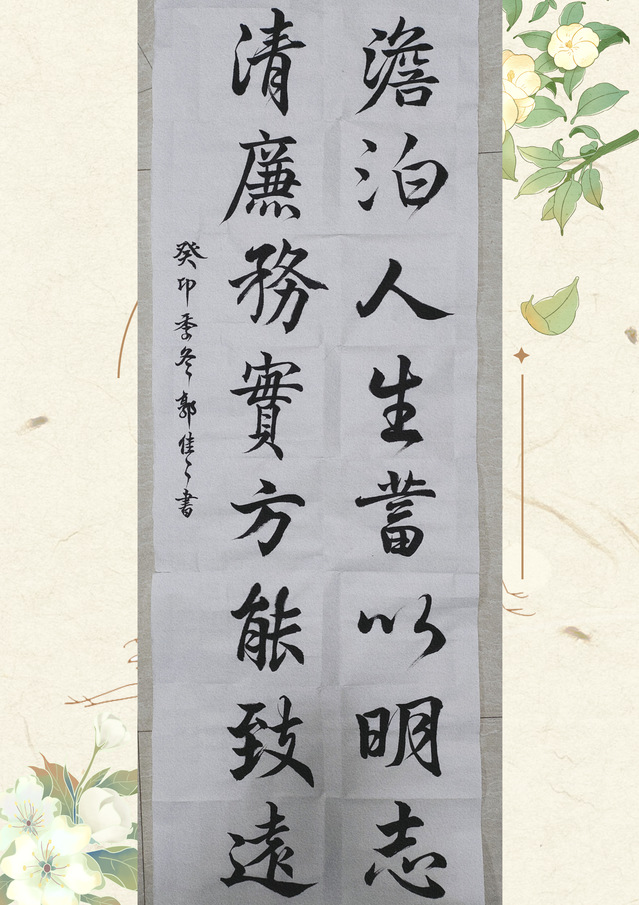 澹泊人生蓄以明志
清廉務實方能致遠
癸卯季冬郭佳々書